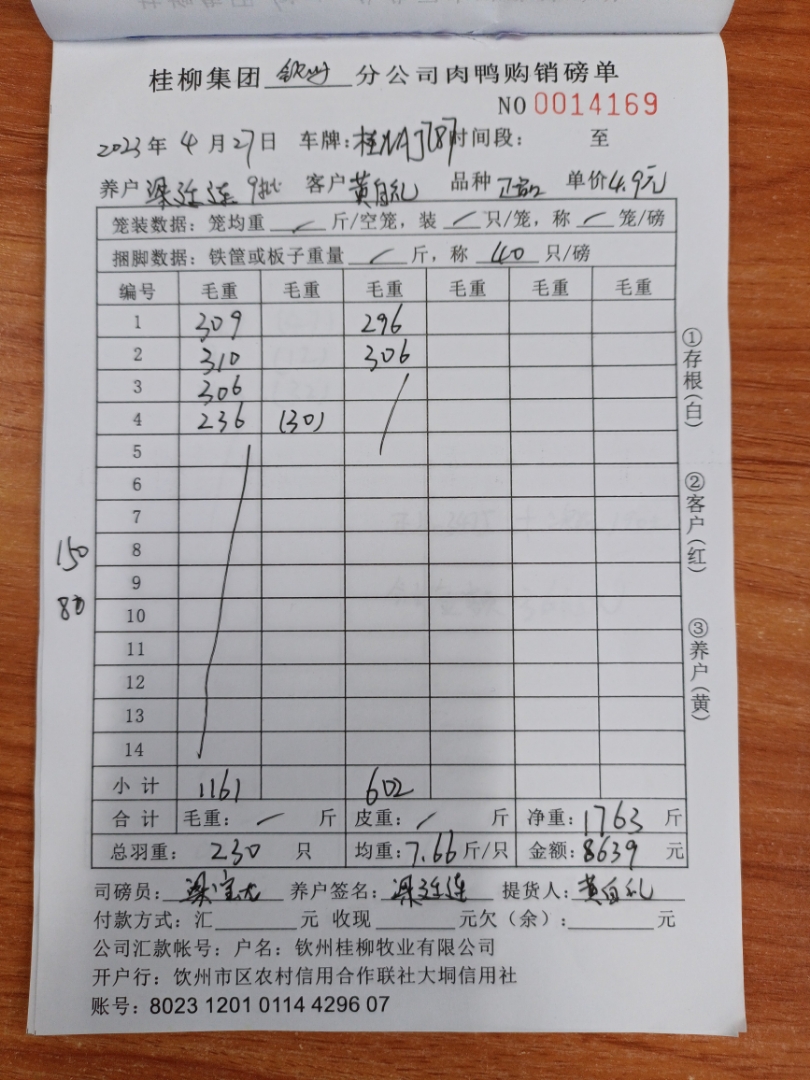 桂柳集团 钦州 分公司肉鸭购销磅单
NO 0014169
2023年 4月27日 车牌: 时间段: 至
养户 梁连连 9批 客户 黄自礼 品种 正品 单价4.9元
笼装数据: 笼均重 / 斤/空笼, 装 / 只/笼, 称 / 笼/磅
捆脚数据: 铁筐或板子重量 / 斤, 称 40 只/磅
编号 毛重 毛重 毛重 毛重 毛重 毛重
1 309 296
2 310 306
3 306
4 236 (30)
5
6
7
8
9
10
11
12
13
14
150
80
小计 1161 602
合计 毛重: / 斤 皮重: / 斤 净重: 1763 斤
总羽重: 230 只 均重: 7.66 斤/只 金额: 8639 元
司磅员: 养户签名: 梁连连 提货人: 黄自礼
付款方式: 汇 元 收现 元欠(余): 元
公司汇款帐号: 户名: 钦州桂柳牧业有限公司
开户行: 饮州市区农村信用合作联社大垌信用社
账号: 8023 1201 0114 4296 07
①存根(白)
②客户(红)
③养户(黄)